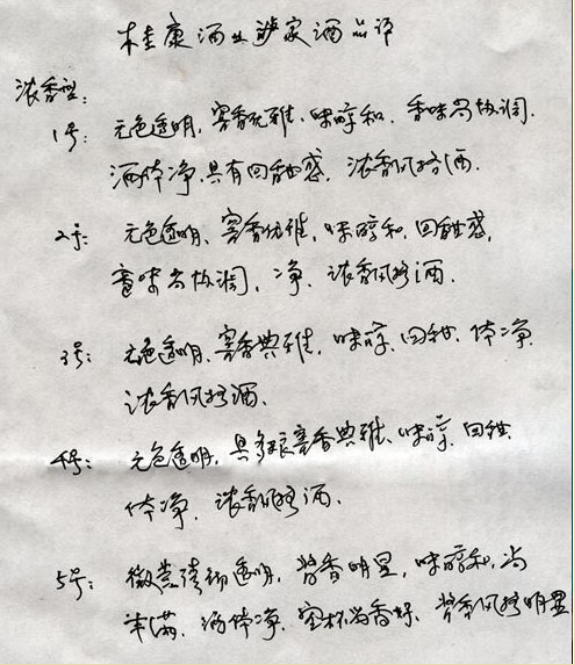 桂康酒业 家酒品评
浓香型:
1号: 无色透明、窖香优雅、味醇和、香味尚协调.
酒体净.具有回甜感. 浓香风格酒.
2号: 无色透明、窖香优雅,味醇和.回甜感,
香味尚协调, 净. 浓香风格酒.
3号: 无色透明、窖香典雅, 味醇、回甜、体净
浓香风格酒、
4号: 无色透明, 窖香典雅、味醇、回甜.
体净. 浓香风格酒.
5号: 微黄清彻透明, 酱香明显, 味醇和,尚
丰满、酒体净、空杯尚香好、酱香风格明显